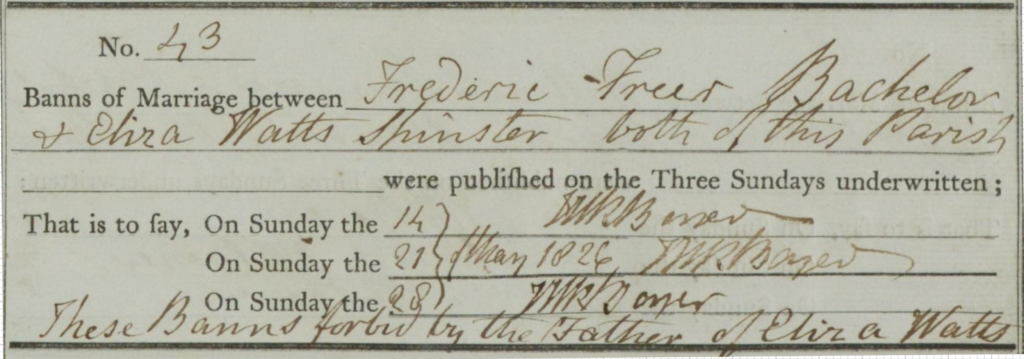 No. 43
Banns of Marriage between Frederic Freer Bachelor
& Eliza Watts Spinster both of this Parish
were publiſhed on the Three Sundays underwritten;
That is to ſay, On Sunday the 14
On Sunday the 21 May 1826
On Sunday the 28
These Banns forbid by the Father of Eliza Watts